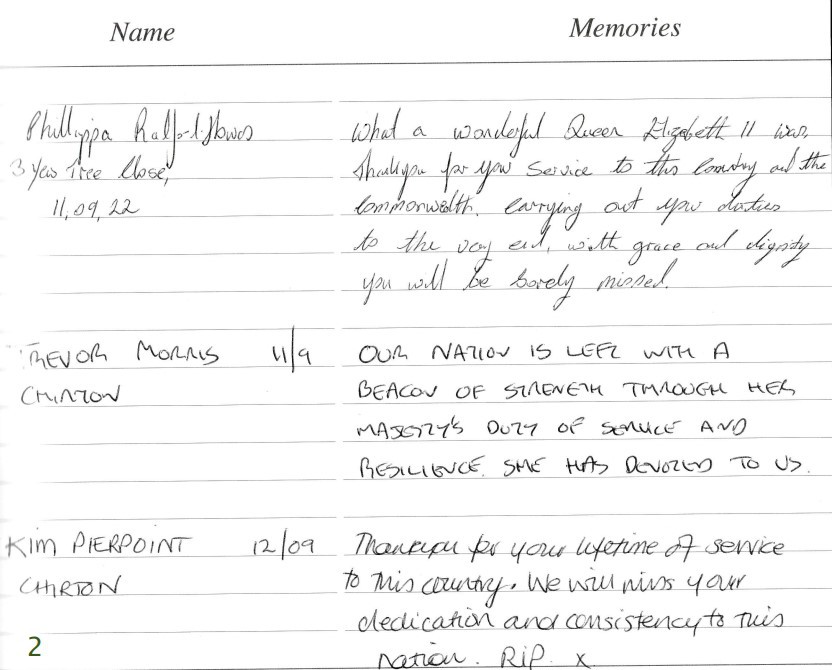 Name Memories
Phillippa Ralford-Howes What a wonderful Queen Elizabeth II was,
3 Yew Tree Close, thankyou for your Service to this Country and the
11,09,22 Commonwealth. Carrying out your duties
to the very end, with grace and dignity
you will be sorely missed.
TREVOR MORRIS 11/9 OUR NATION IS LEFT WITH A
CHIRTON BEACON OF STRENGTH THROUGH HER
MAJESTY'S DUTY OF SERVICE AND
RESILIENCE. SHE HAS DEVOTED TO US.
KIM PIERPOINT 12/09 Thankyou for your lifetime of service
CHIRTON to this country. We will miss your
dedication and consistency to this
2 nation. RIP. x